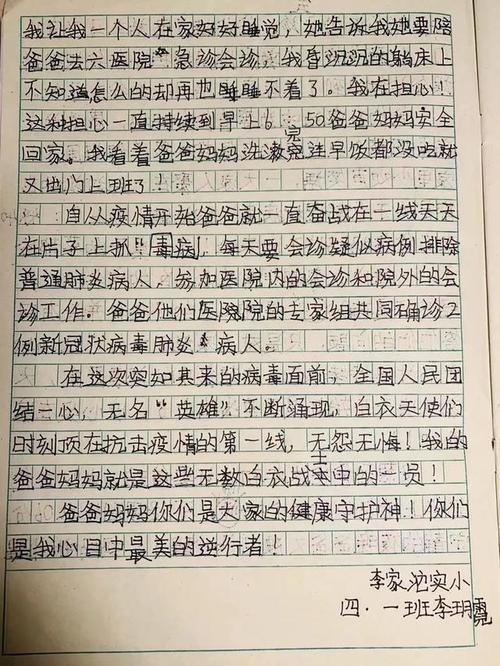 我让我一个人在家好好睡觉，她告诉我她要陪
爸爸去六医院“急诊会诊，我昏沉沉的躺床上
不知道怎么的却再也睡睡不着了。我在担心
这种担心一直持续到早上6：50爸爸妈妈安全
回家。我看着爸爸妈妈洗漱完连早饭都没吃就
又出门上班了！
自从疫情开始爸爸就一直奋战在一线天天
在片子上抓“毒病，每天要会诊疑似病例排除
普通肺炎病人，参加医院内的会诊和院外的会
诊工作。爸爸他们医院院的专家组共同确诊2
例新冠状病毒肺炎“病人。
在这次突如其来的病毒面前，全国人民团
结一心，无名“英雄”不断涌现，白衣天使们
时刻顶在抗击疫情的第一线，无怨无悔！我的
爸爸妈妈就是这些无数白衣战士中的一员！
爸爸妈妈你们是大家的健康守护神！你们
是我心目中最美的逆行者！
李家沱实小
四．一班李玥霓